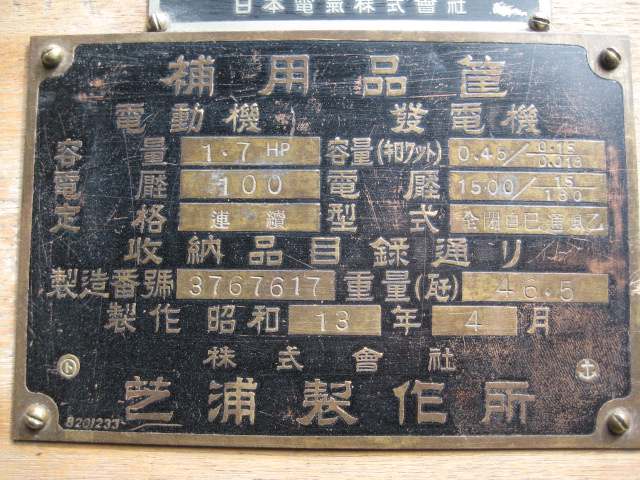 日本電氣株式會社
補用品筐
電動機 發電機
容量 1.7 HP 容量(キロワット) 0.45/0.15/0.013
電壓 100 電壓 1500/15/130
定格 連續 型式 全閉自己通風乙
收納品目録通リ
製造番號 3767617 重量(瓩) 46.5
製作昭和 13 年 4 月
株式會社
芝浦製作所
8201233